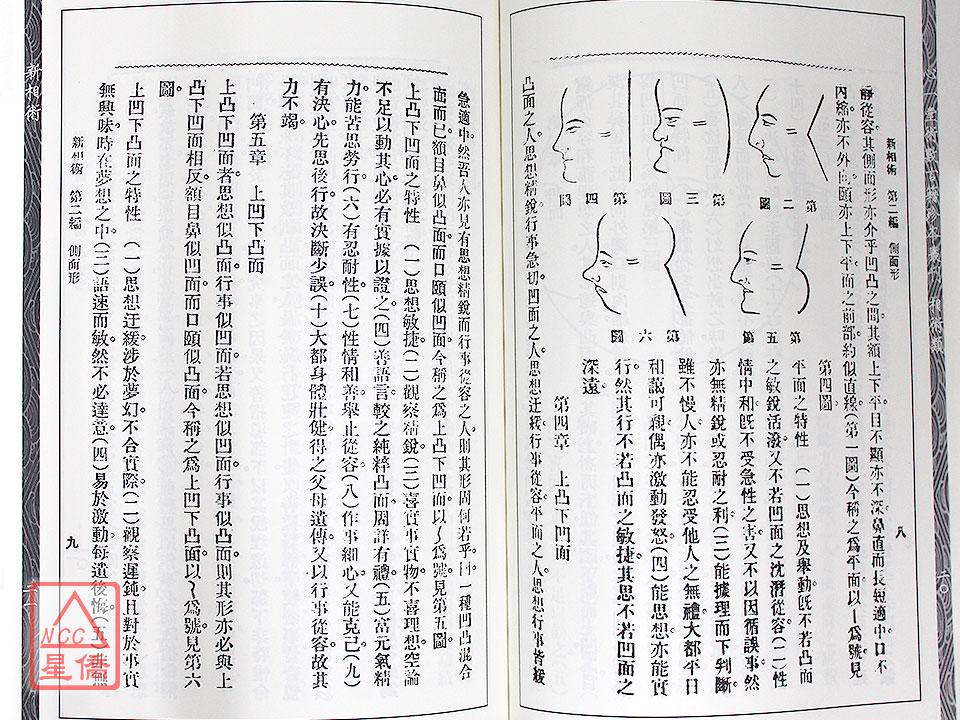 新相術　第二編　側面形
八
靜從容其側面形亦介乎凹凸之間其額上下平目不顯亦不深鼻直而長短適中口不
內縮亦不外向頤亦上下平面之前部約似直線(第一圖)今稱之爲平面以｜爲號見
第四圖
平面之特性　(一)思想及舉動旣不若凸面
之敏銳活潑又不若凹面之沈潛從容(二)性
情中和旣不受急性之害又不以因循誤事然
亦無精銳或忍耐之利(三)能據理而下判斷
雖不慢人亦不能忍受他人之無禮大都平日
和藹可親偶亦激動發怒(四)能思想亦能實
行然其行不若凸面之敏捷其思不若凹面之
深遠
第二圖
第三圖
第四圖
第五圖
第六圖
第四章　上凸下凹面
凸面之人思想精銳行事急切凹面之人思想迂緩行事從容平面之人思想行事皆緩
急適中然吾人亦見有思想精銳而行事從容之人則其形固何若乎曰一種凹凸混合
面而已額目鼻似凸面而口頤似凹面今稱之爲上凸下凹面以〜爲號見第五圖
上凸下凹面之特性　(一)思想敏捷(二)觀察精銳(三)喜實事實物不喜理想空論
不足以動其心必有實據以證之(四)善語言較之純粹凸面周詳有禮(五)富元氣精
力能苦思勞行(六)有忍耐性(七)性情和善舉止從容(八)作事細心又能克己(九)
有決心先思後行故決斷少誤(十)大都身體壯健得之父母遺傳又以行事從容故其
力不竭
第五章　上凹下凸面
上凸下凹面者思想似凸面行事似凹面若思想似凹面行事似凸面則其形亦必與上
凸下凹面相反額目鼻似凹面而口頤似凸面今稱之爲上凹下凸面以〜爲號見第六
圖
上凹下凸面之特性　(一)思想迂緩涉於夢幻不合實際(二)觀察遲鈍且對於事實
無興味時在夢想之中(三)語速而敏然不必達意(四)易於激動每遺後悔(五)非無
新相術　第二編　側面形
九
新相術
NCC
星僑